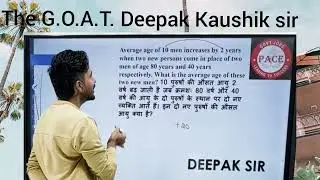 The G.O.A.T. Deepak Kaushik sir
Average age of 10 men increases by 2 years
when two new persons come in place of two
men of age 80 years and 40 years
respectively. What is the average age of these
two new men? 10 पुरुषों की औसत आयु 2
वर्ष बढ़ जाती है जब क्रमशः 80 वर्ष और 40
वर्ष की आयु के दो पुरुषों के स्थान पर दो नए
व्यक्ति आते हैं। इन दो नए पुरुषों की औसत
आयु क्या है?
PACE
DEEPAK SIR